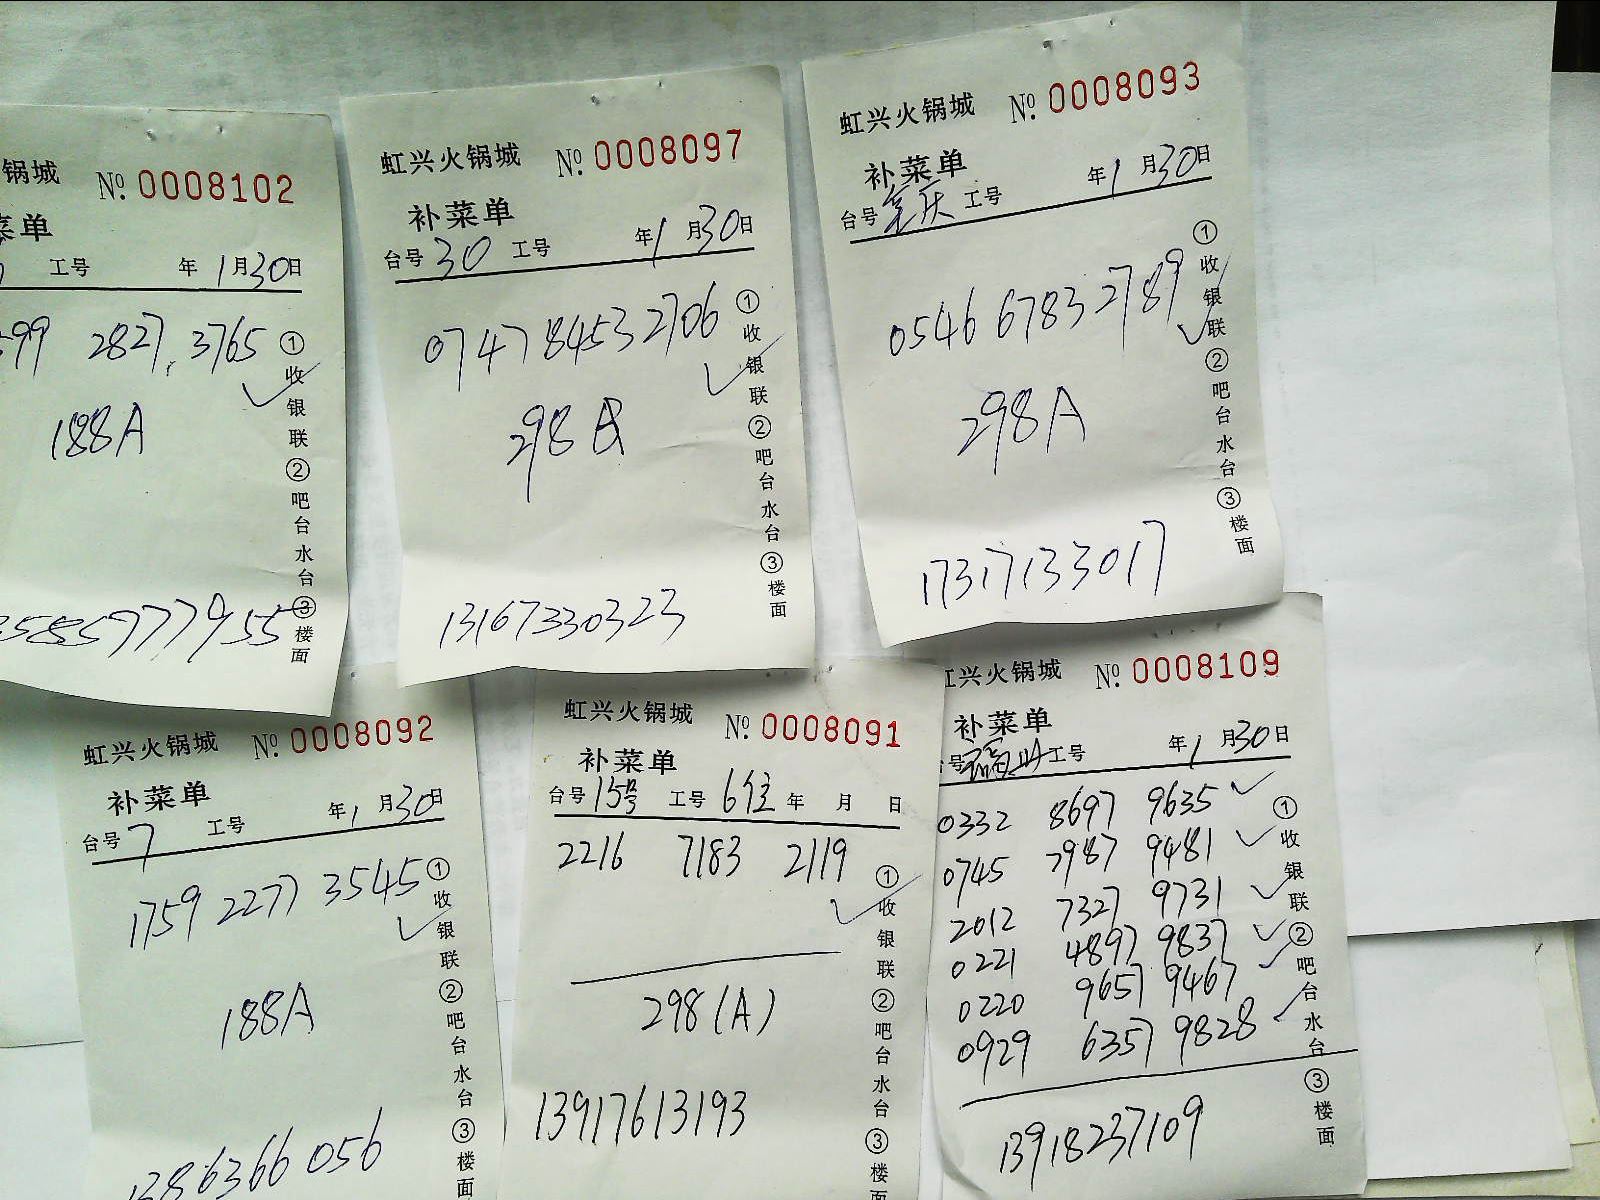 锅城 No. 0008102
菜单
工号 年1月30日
599 2827 3765
188A
3585977955
①收银联②吧台水台③楼面
虹兴火锅城 No. 0008097
补菜单
台号30 工号 年1月30日
0747 8453 2706
298A
13167330323
①收银联②吧台水台③楼面
虹兴火锅城 No. 0008093
补菜单
台号重庆 工号 年1月30日
0546 6783 2789
298A
17317133017
①收银联②吧台水台③楼面
虹兴火锅城 No. 0008092
补菜单
台号7 工号 年1月30日
1759 2277 3545
188A
1386366056
①收银联②吧台水台③楼面
虹兴火锅城 No. 0008091
补菜单
台号15号 工号6位 年 月 日
2216 7183 2119
298(A)
13917613193
①收银联②吧台水台③楼
虹兴火锅城 No. 0008109
补菜单
号 工号 年1月30日
0332 8697 9635
0745 7987 9481
2012 7327 9731
0221 4897 9837
0220 9657 9467
0929 6357 9828
13918237109
①收银联②吧台水台③楼面